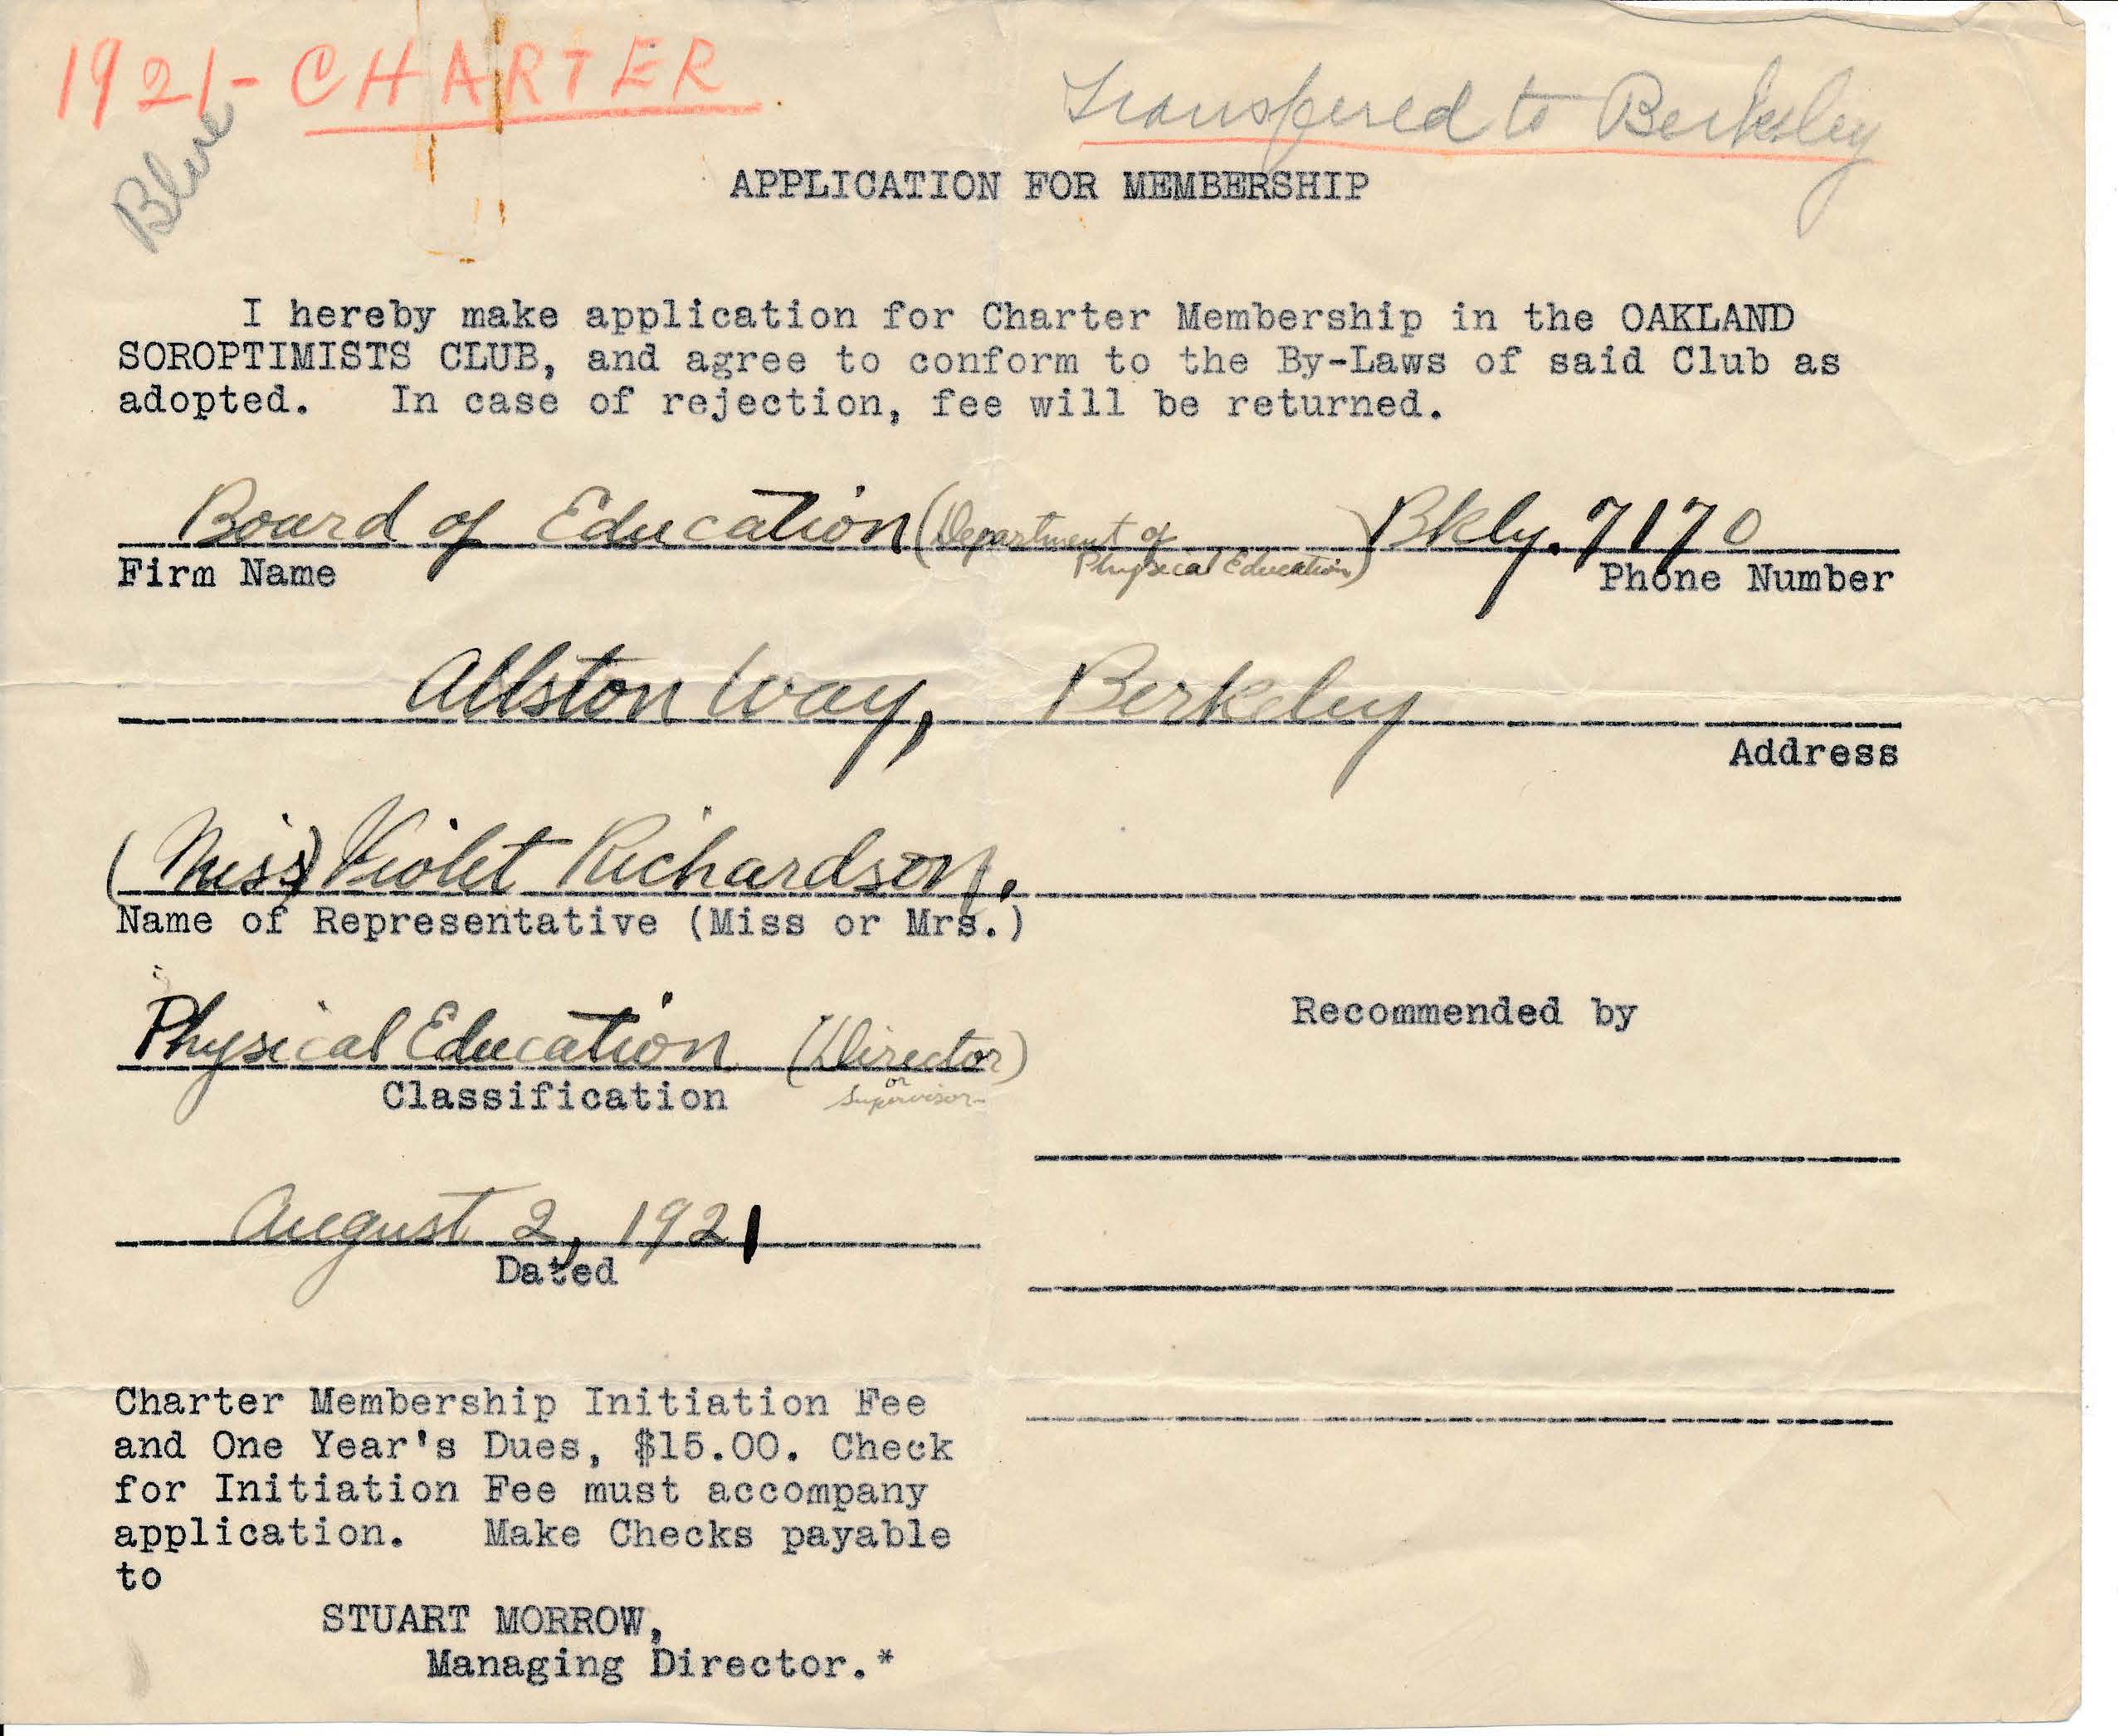 1921 - CHARTER
Blue
Transfered to Berkeley
APPLICATION FOR MEMBERSHIP
I hereby make application for Charter Membership in the OAKLAND
SOROPTIMISTS CLUB, and agree to conform to the By-Laws of said Club as
adopted. In case of rejection, fee will be returned.
Board of Education (Department of Physical Education) Bkly. 7170
Firm Name Phone Number
Allston Way, Berkeley
Address
(Miss) Violet Richardson.
Name of Representative (Miss or Mrs.)
Physical Education (Director)
or
Supervisor
Classification
Recommended by
August 2, 1921
Dated
Charter Membership Initiation Fee
and One Year's Dues, $15.00. Check
for Initiation Fee must accompany
application. Make Checks payable
to
STUART MORROW,
Managing Director.*